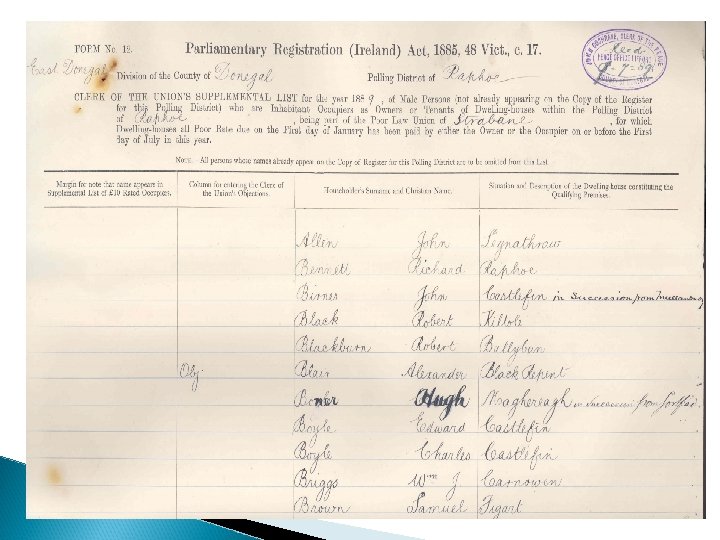 FORM No. 12. Parliamentary Registration (Ireland) Act, 1885, 48 Vict., c. 17.
JOHN COCHRANE, CLERK OF THE PEACE
Recd
PEACE OFFICE LIFFORD
9-7-89
East Donegal Division of the County of Donegal Polling District of Raphoe
CLERK OF THE UNION'S SUPPLEMENTAL LIST for the year 1889, of Male Persons (not already appearing on the Copy of the Register
for this Polling District) who are Inhabitant Occupiers as Owners or Tenants of Dwelling-houses within the Polling District
of Raphoe, being part of the Poor Law Union of Strabane, for which
Dwelling-houses all Poor Rate due on the First day of January has been paid by either the Owner or the Occupier on or before the First
day of July in this year.
NOTE.—All persons whose names already appear on the Copy of Register for this Polling District are to be omitted from this List.
Margin for note that name appears in Supplemental List of £10 Rated Occupiers.
Column for entering the Clerk of the Union's Objections.
Householder's Surname and Christian Name.
Situation and Description of the Dwelling-house constituting the Qualifying Premises.
Allen John
Bennett Richard Raphoe
Birnes John Castlefin in succession from
Black Robert
Blackburn Robert Ballybun
Obj. Blair Alexander Black Repent
Boner Hugh Maghereagh in succession from
Boyle Edward Castlefin
Boyle Charles Castlefin
Briggs Wm J Carnowen
Brown Samuel Figart